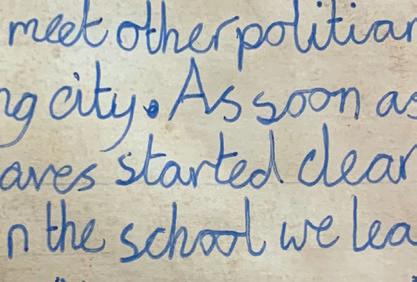 meet other politiar
ng city. As soon as
aves started clear
n the school we lea